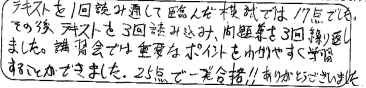 テキストを1回読み通して臨んだ模試では17点でした。
その後テキストを3回読み込み、問題集を3回繰り返し
ました。講習会では重要なポイントをわかりやすく学習
することができました。25点で一発合格!!ありがとうございました